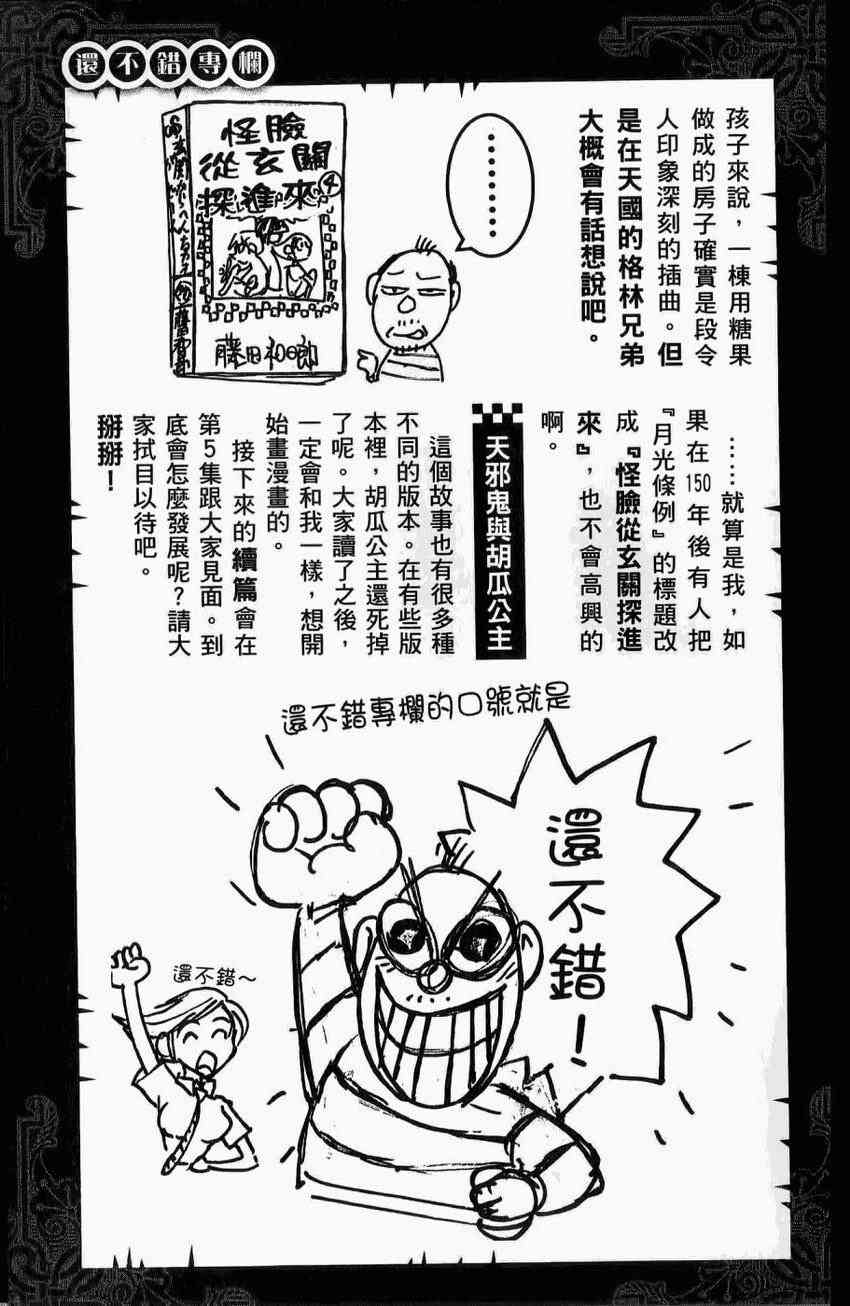 還不錯專欄
孩子來說，一棟用糖果
做成的房子確實是段令
人印象深刻的插曲。但
是在天國的格林兄弟
大概會有話想說吧。
………
怪臉
從玄關
探進來
④
藤田和日郎
……就算是我，如
果在150年後有人把
『月光條例』的標題改
成『怪臉從玄關探進
來』，也不會高興的
啊。
天邪鬼與胡瓜公主
這個故事也有很多種
不同的版本。在有些版
本裡，胡瓜公主還死掉
了呢。大家讀了之後，
一定會和我一樣，想開
始畫漫畫的。
接下來的續篇會在
第5集跟大家見面。到
底會怎麼發展呢？請大
家拭目以待吧。
掰掰！
還不錯專欄的口號就是
還不錯！
還不錯～